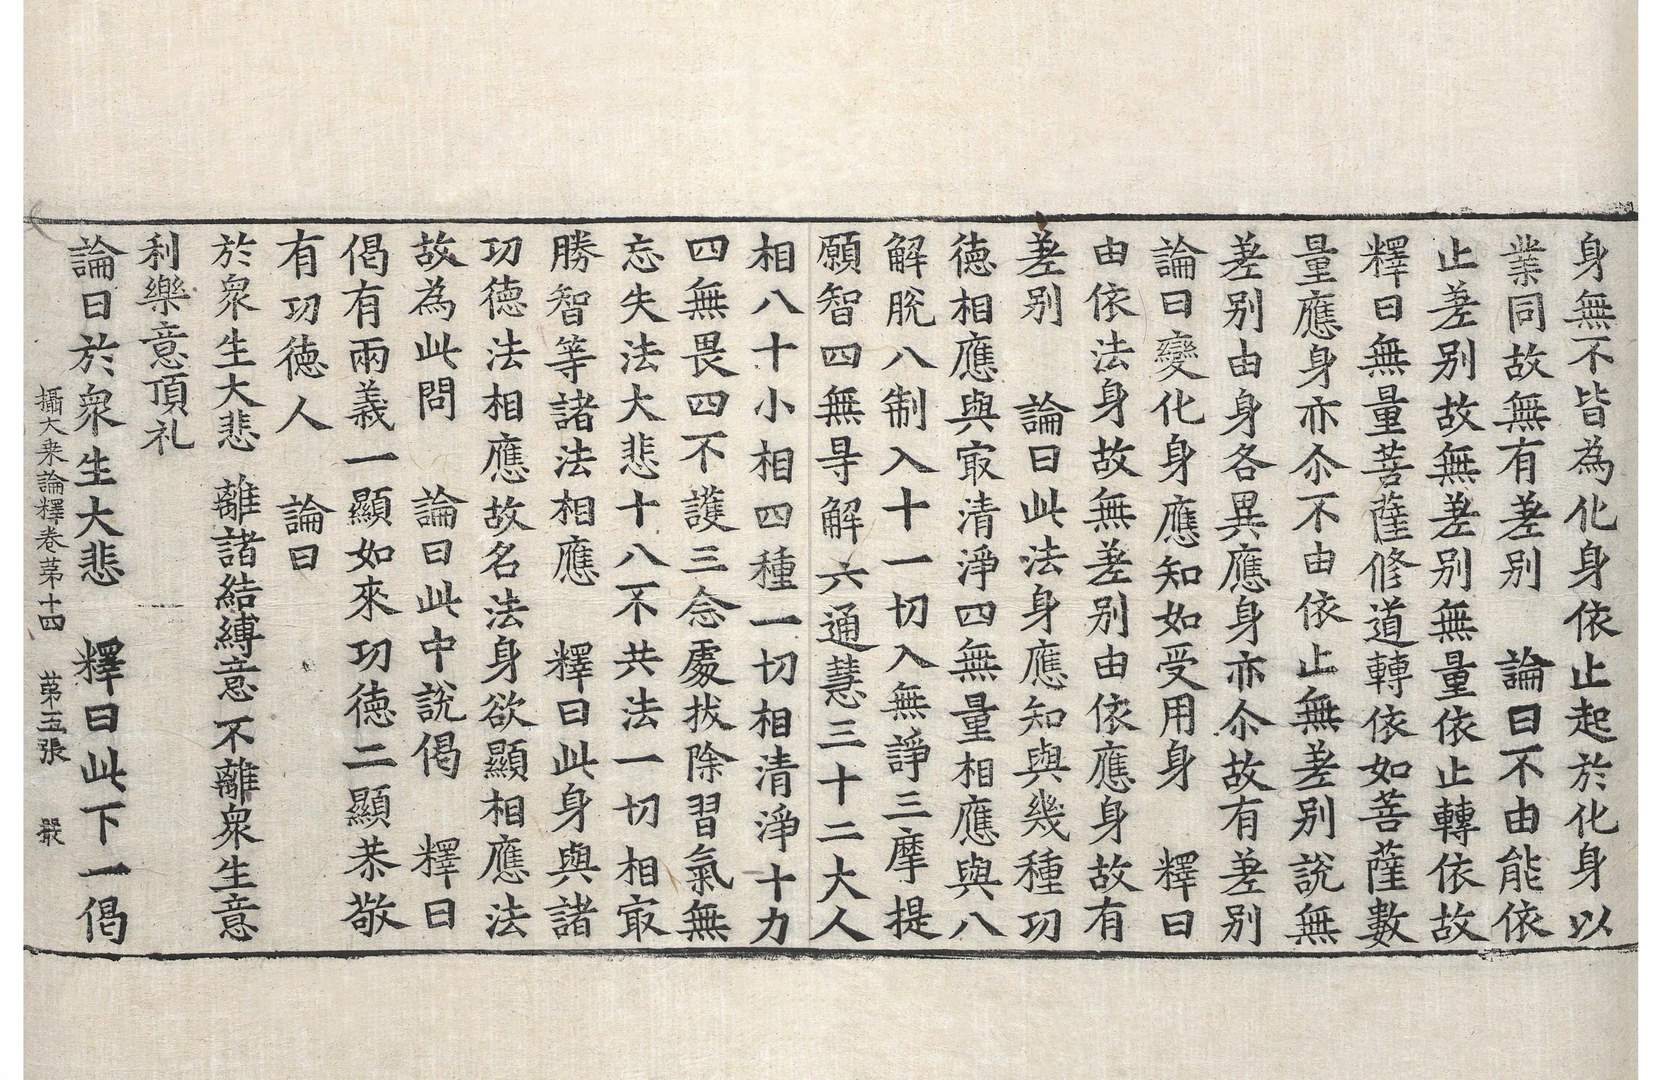 身無不皆為化身依止起於化身以
業同故無有差别　論曰不由能依
止差别故無差别無量依止轉依故
釋曰無量菩薩修道轉依如菩薩數
量應身亦尒不由依止無差别說無
差别由身各異應身亦尒故有差别
論曰變化身應知如受用身　釋曰
由依法身故無差别由依應身故有
差别　論曰此法身應知與幾種功
徳相應與㝡清淨四無量相應與八
解脫八制入十一切入無諍三摩提
願智四無㝵解六通慧三十二大人
相八十小相四種一切相清淨十力
四無畏四不護三念處拔除習氣無
忘失法大悲十八不共法一切相㝡
勝智等諸法相應　釋曰此身與諸
功徳法相應故名法身欲顯相應法
故為此問　論曰此中說偈　釋曰
偈有兩義一顯如來功徳二顯恭敬
有功徳人　論曰
於衆生大悲　離諸結縛意　不離衆生意
利樂意頂礼
論曰於衆生大悲　釋曰此下一偈
攝大乗論釋卷苐十四　苐五張　嚴